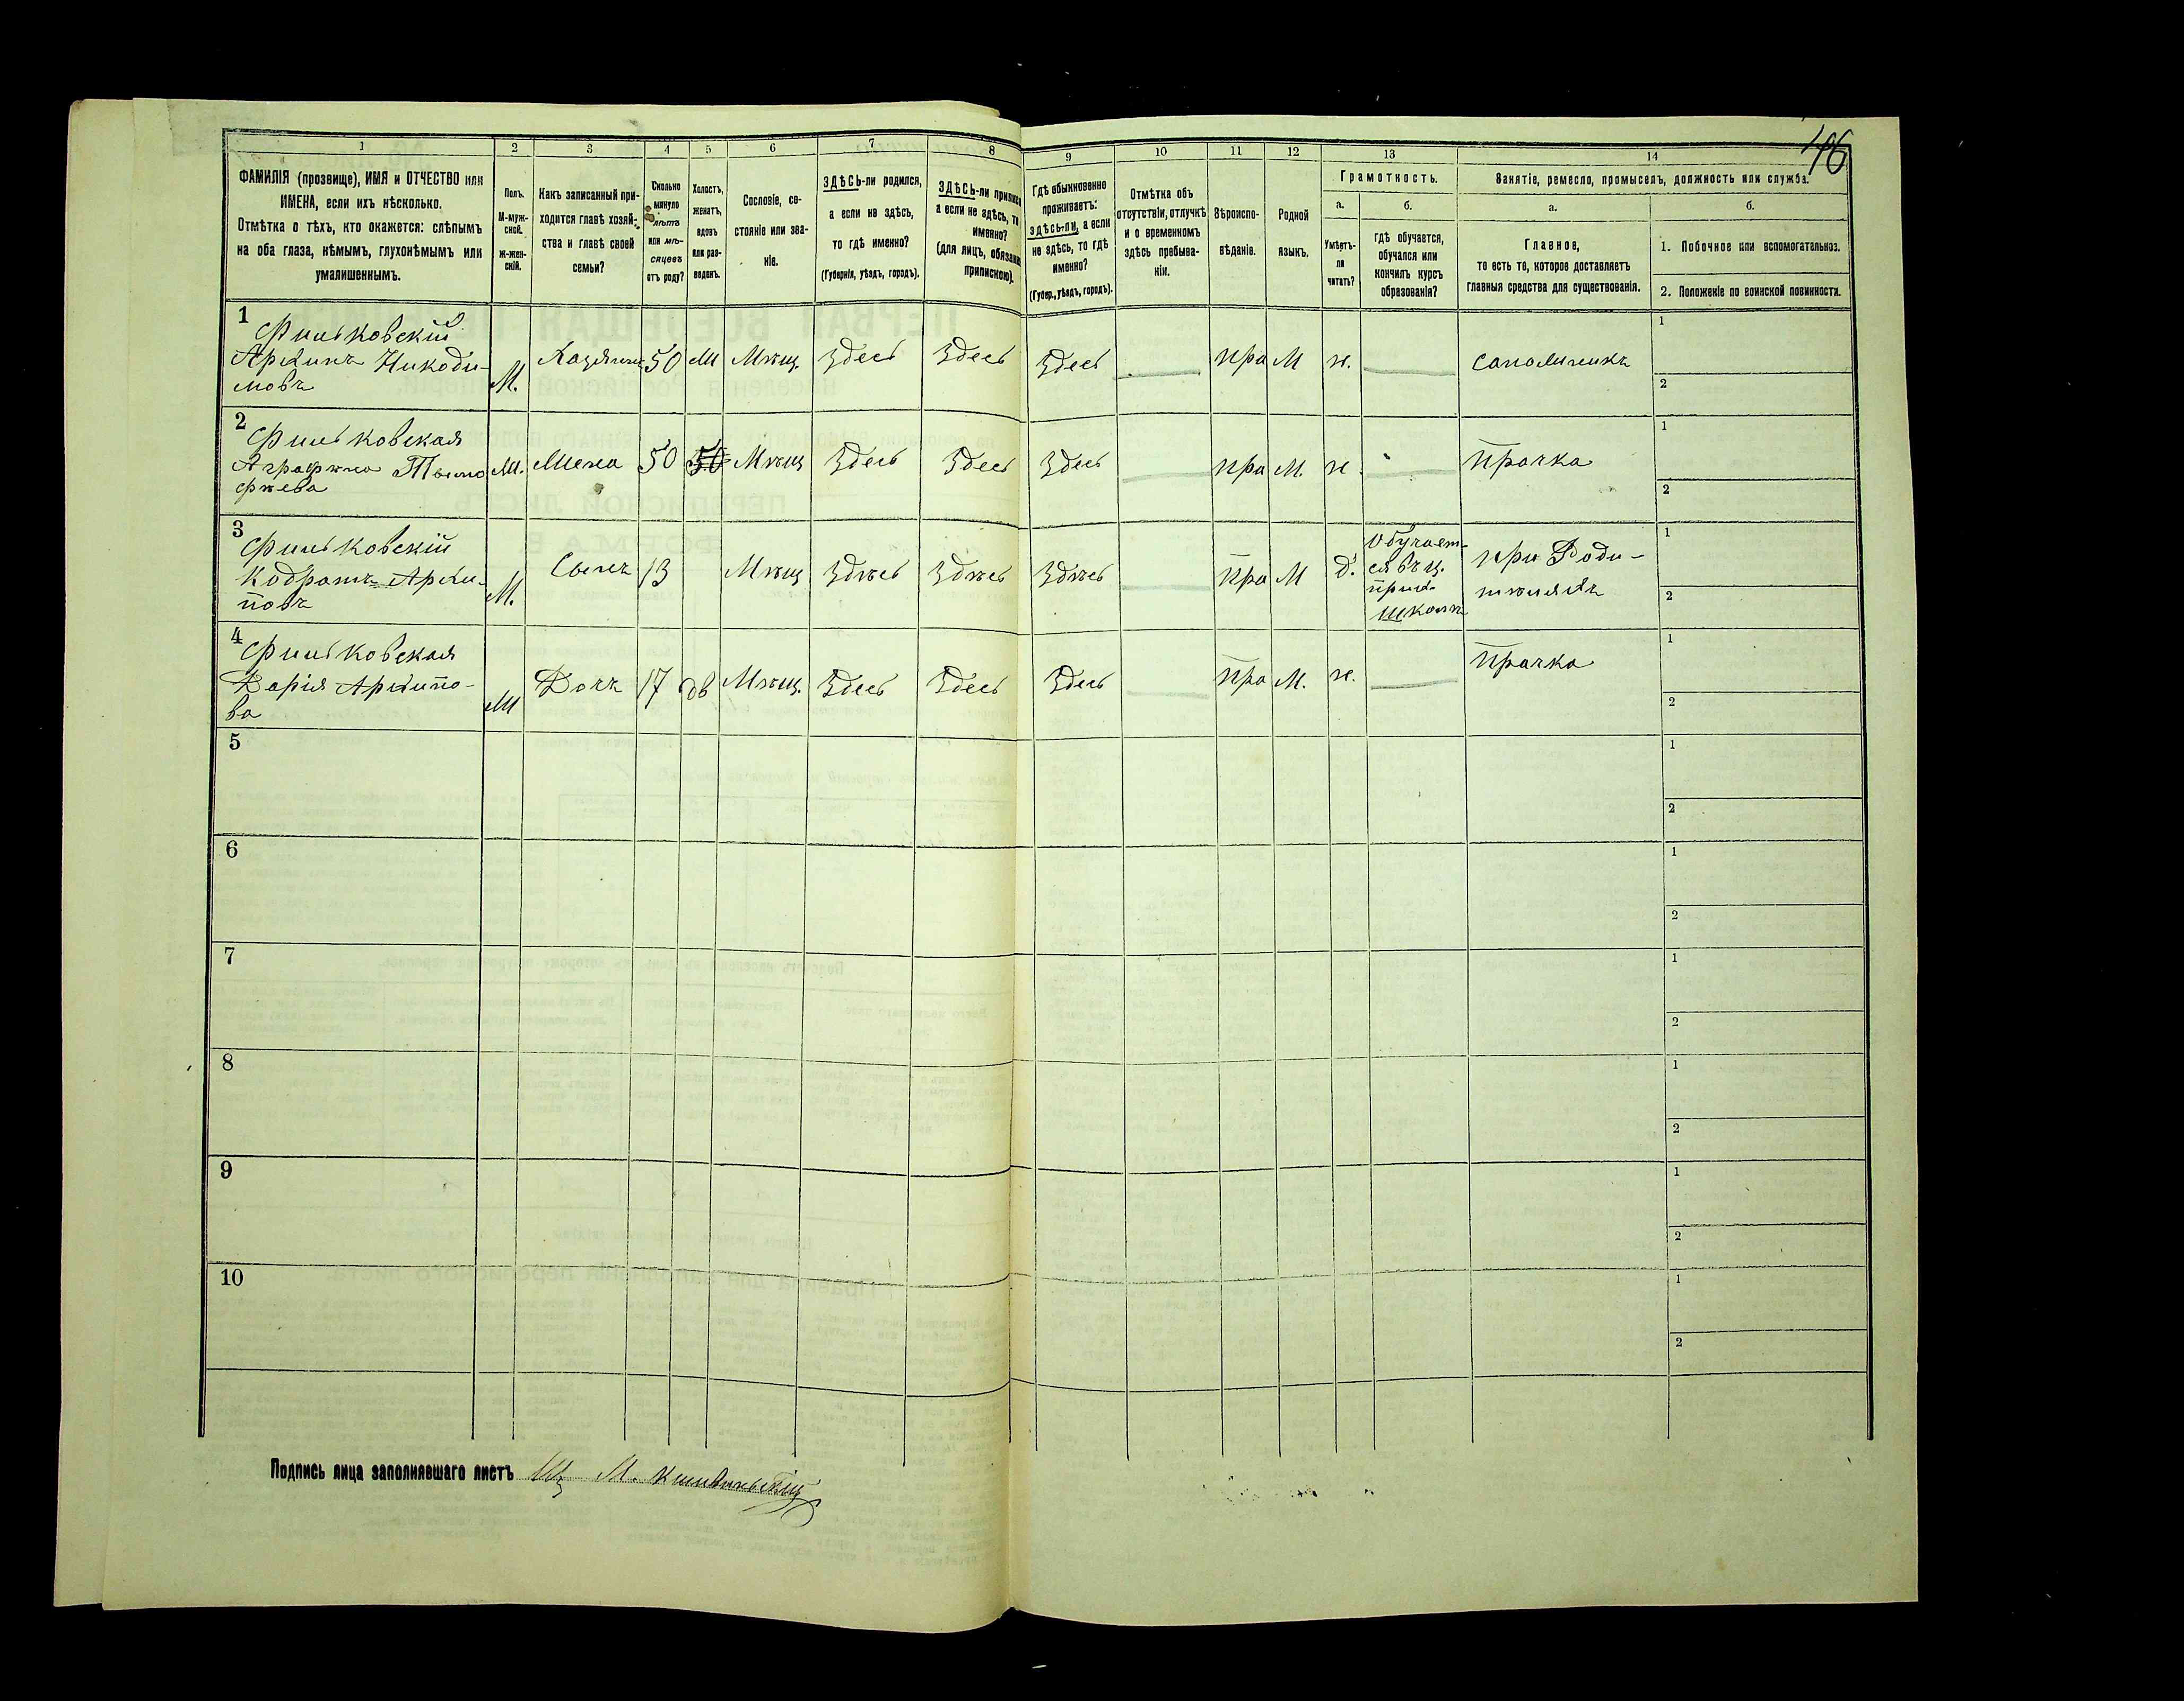 146
1 2 3 4 5 6 7 8 9 10 11 12 13 14
ФАМИЛІЯ (прозвище), ИМЯ и ОТЧЕСТВО или
ИМЕНА, если ихъ нѣсколько.
Отмѣтка о тѣхъ, кто окажется: слѣпымъ
на оба глаза, нѣмымъ, глухонѣмымъ или
умалишеннымъ.
Полъ.
М-муж-
ской.
Ж-жен-
скій.
Какъ записанный при-
ходится главѣ хозяй-
ства и главѣ своей
семьи?
Сколько
минуло
лѣтъ
или мѣ-
сяцевъ
отъ роду?
Холостъ,
женатъ,
вдовъ
или раз-
веденъ.
Сословіе, со-
стояніе или зва-
ніе.
ЗДѢСЬ-ли родился,
а если не здѣсь,
то гдѣ именно?
(Губернія, уѣздъ, городъ).
ЗДѢСЬ-ли приписа
а если не здѣсь, то
именно?
(для лицъ, обязан
припискою).
Гдѣ обыкновенно
проживаетъ:
здѣсь-ли, а если
не здѣсь, то гдѣ
именно?
(Губер., уѣздъ, городъ).
Отмѣтка объ
отсутствіи, отлучкѣ
и о временномъ
здѣсь пребыва-
ніи.
Вѣроиспо-
вѣданіе.
Родной
языкъ.
Грамотность.
а.
Умѣетъ-
ли
читать?
б.
гдѣ обучается,
обучался или
кончилъ курсъ
образованія?
Занятіе, ремесло, промыселъ, должность или служба.
а.
Главное,
то есть то, которое доставляетъ
главныя средства для существованія.
б.
1. Побочное или вспомогательное.
2. Положеніе по воинской повинности.
1
Финьковскій
Архипъ Никоди-
мовъ
М. Хазяинъ 50 Ж Мѣщ. Здесь Здесь Здесь пра М н. Сапожникъ
1
2
2
Финьковская
Аграфѣна Тымо
фѣева
Ж. Жена 50 Мѣщ Здесь Здесь Здесь пра М. н. Прачка
1
2
3
Финьковскій
Кодратъ Архи-
повъ
М. Сынъ 13 Мѣщ Здѣсь Здѣсь Здѣсь пра М д.
Обучает-
ся въ ц.
прих.
школѣ
при Роди-
тѣляхъ
1
2
4
Финьковская
Дарія Архипо-
ва
Ж Дочь 17 дѣ Мѣщ. Здесь Здесь Здесь пра М. н. Прачка
1
2
5
1
2
6
1
2
7
1
2
8
1
2
9
1
2
10
1
2
Подпись лица заполнявшаго листъ